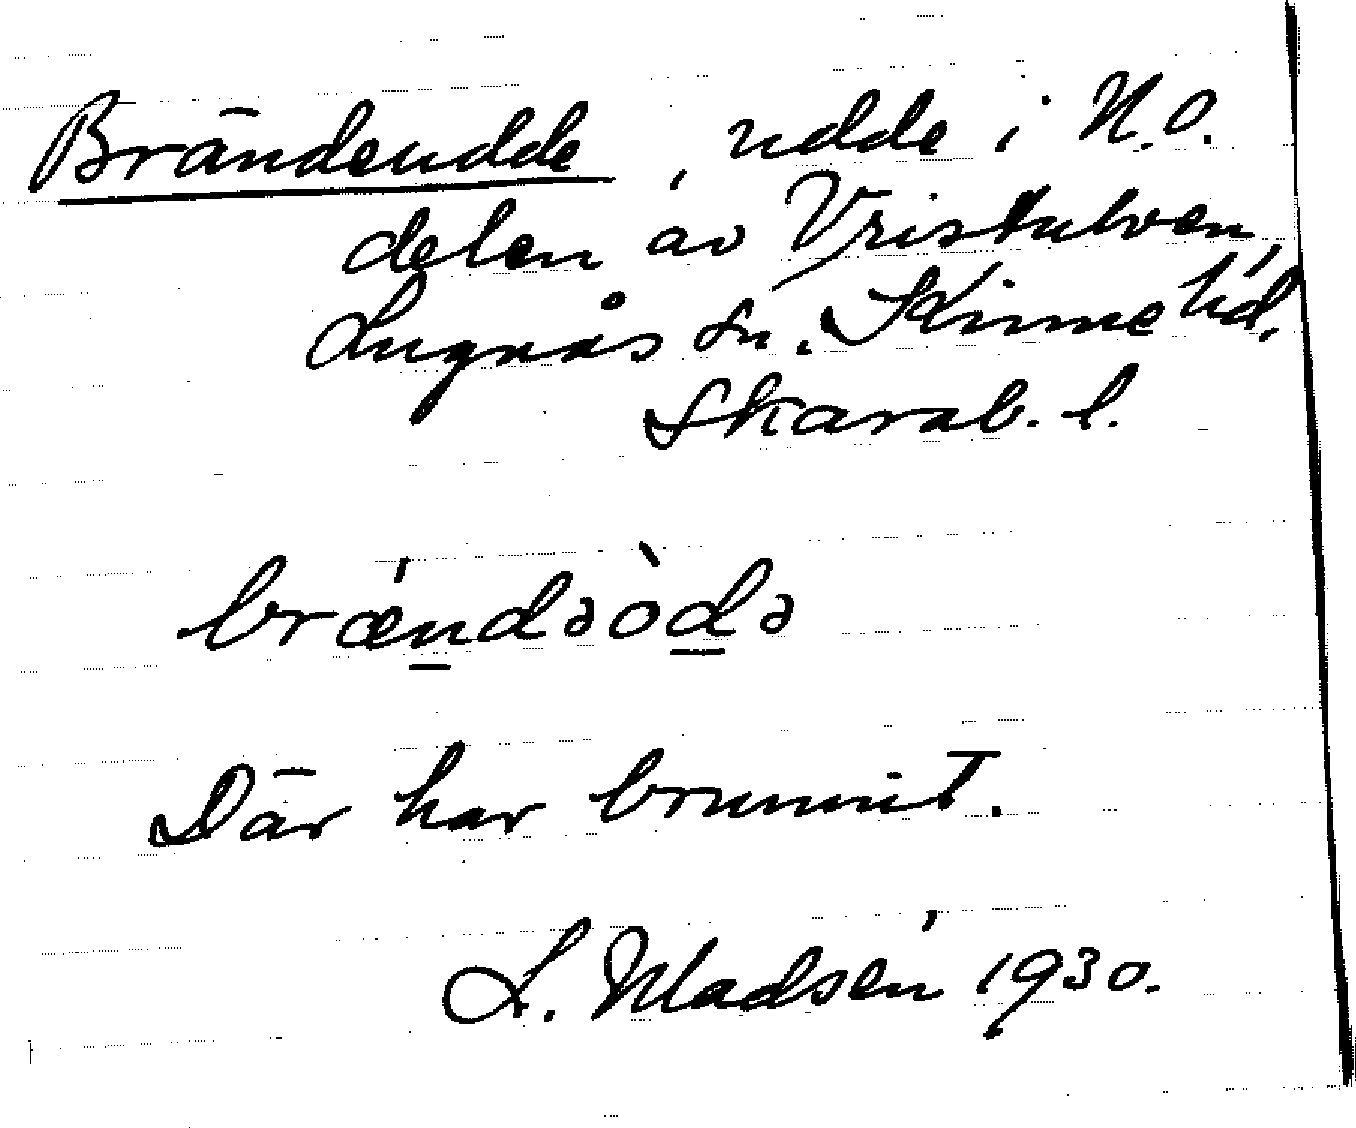 Brändeudde, udde i N.O.
delen av Vristulven,
Lugnås sn. Kinne hd,
Skarab. l.
brǽndəòdə
Där har brunnit.
L. Madsén 1930.